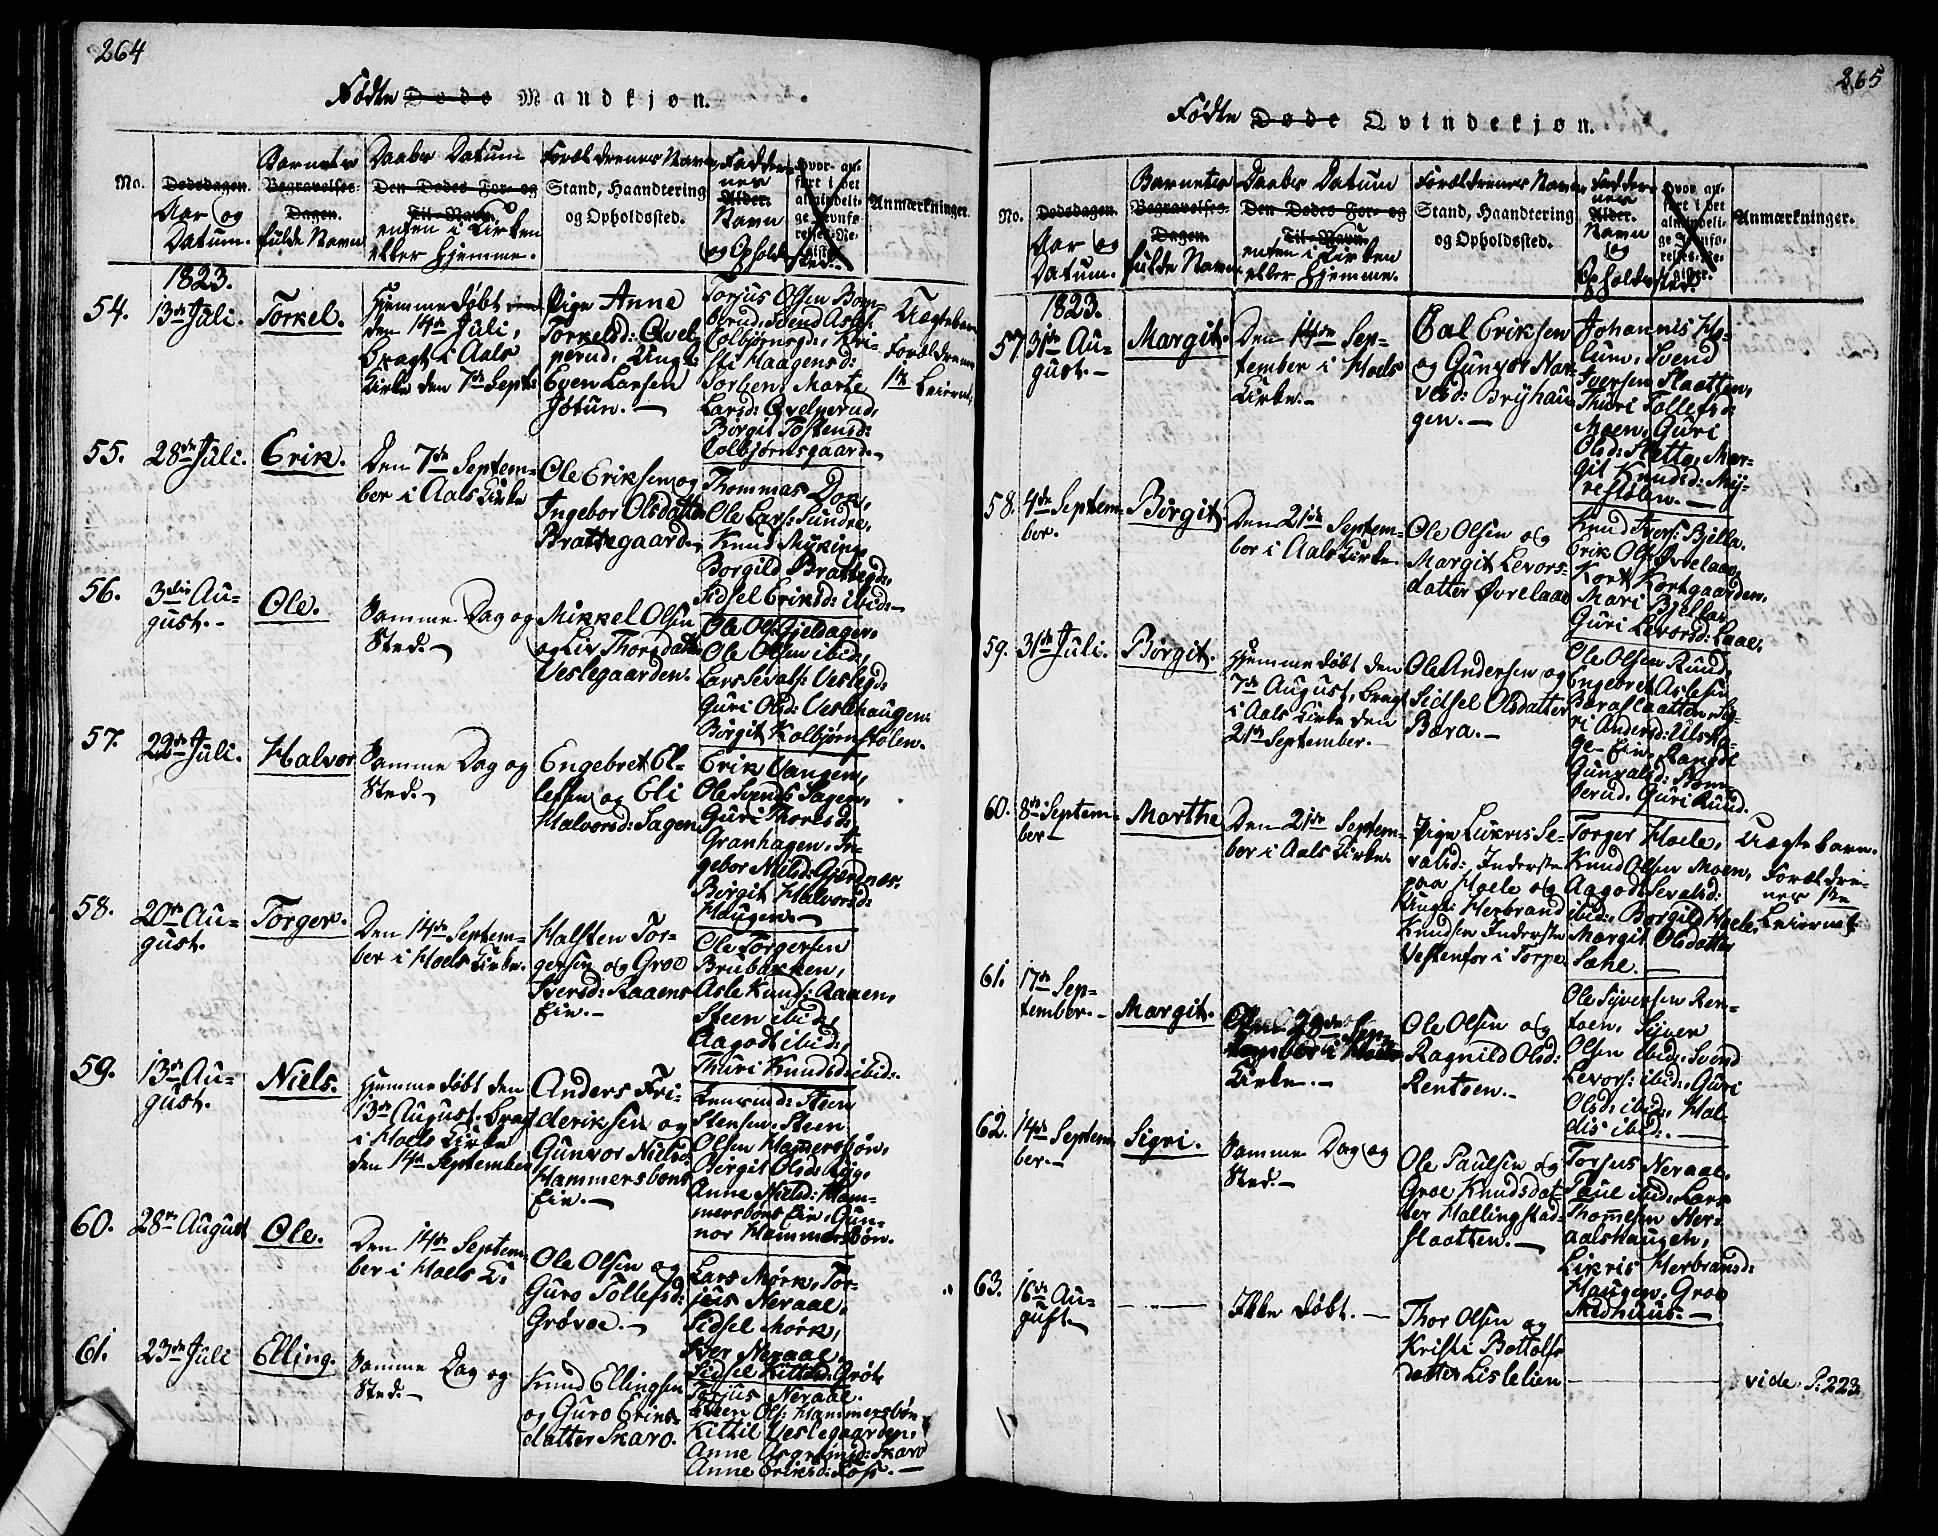 264
Fødte Døde Mandkjøn.
No.
Dødsdagen.
Aar og
Datum.
Barnets
Begravelses-
Dagen.
fulde Navn
Daabs Datum
Den Dødes For- og
Til-Navn.
enten i Kirken
eller Hjemme.
Forældrenes Navn
Stand, Haandtering
og Opholdssted.
Fadder-
nes
Alder.
Navn
og Opholdssted.
Hvor an-
ført i det
almindeli-
ge Jevnfø-
relses-Re-
gister.
Anmærkninger.
1823.
54.
13de Juli.
Torkel.
Hjemmedøbt
den 14de Juli,
bragt i Aals
Kirke den 7de Sept:
Pige Anne
Torkelsd: Qvel-
perud, Ungk:
Even Larsen
Jotun.
Torjus Olsen Bom-
berud, Svend Aslf:
Colbjørnsgd:, Kri-
sti Haagensd:
Torben, Marte
Larsd: Qvelperud,
Borgit Tostensd:
Colbjørnsgaard.
Uægtebarn
Forældrenes
1te Leierm:
55.
28de Juli.
Erik.
Den 7de Septem-
ber i Aals Kirke
Ole Eriksen og
Ingebor Olsdatter
Brattegaard.
Thommas Dok,
Ole Lars: Sundre,
Knud Myking,
Borgild Brattegd:,
Sidsel Eriksd: ibid:
56.
3die Au-
gust.
Ole.
Samme Dag og
Sted.
Mikkel Olsen
og Liv Thorsdatter
Veslegaarden.
Ole Ols: Gjeldager,
Ole Olsen ibid:,
Lars Sevals: Veslegd:
Guri Olsd: Veslehaugen,
Birgit Kolbjørnstølen.
57.
22de Juli.
Halvor
Samme Dag og
Sted.
Engebret El-
lefsen og Eli
Halvorsd: Sagen
Erik Vangen,
Ole Svends: Sagen,
Guri Thoresd:
Granhagen, In-
gebor Nielsd: Gjerdnes,
Birgit Halvorsd:
Haugen.
58.
20de Au-
gust.
Torger.
Den 14de Septem-
ber i Hoels Kirke.
Halsten Tor-
gersen og Groe
Iversd: Raaens
Eie.
Ole Torgersen
Brubakken,
Asle Knuds: Aaaen,
Steen ibid:,
Aagodt ibid:,
Thuri Knudsd: ibid:
59.
13de Au-
gust.
Niels.
Hjemmedøbt den
13de August, bragt
i Hoels Kirke
den 14de September
Anders Fri-
deriksen og
Gunvor Nielsd:
Hammersbøns
Eie.
Steen
Stensen, Steen
Olsen Hamersbøn,
Bergit Olsd: Rye,
Anne Nielsd: Ham-
mersbøns Eie, Gun-
nor Hammersbøn.
60.
28de August
Ole.
Den 14de Septem-
ber i Hoels K:
Ole Olsen og
Guro Tollefsd:
Grøvoe.
Lars Mørk, Tor-
jus Neraal,
Sidsel Mørk,
Iver Neraal,
Sidsel Kittelsd: Grøt
61.
23de Juli
Elling.
Samme Dag og
Sted.
Knud Ellingsen
og Guro Eriks-
datter Skaro.
Torjus Neraal.
Steen Ols: Hammersbøn
Kittil Veslegaarden,
Anne Asgrimsd: Skaro
Anne Eriksd:
265
Fødte Døde Qvindekjøn.
No.
Dødsdagen.
Aar og
Datum.
Barnets
Begravelses-
Dagen.
fulde Navn
Daabs Datum
Den Dødes For- og
Til-Navn.
enten i Kirken
eller Hjemme.
Forældrenes Navn
Stand, Haandtering
og Opholdssted.
Fadder-
nes
Alder.
Navn
og
Opholdssted.
Hvor an-
ført i det
almindeli-
ge Jevnfø-
relses-Re-
gister.
Anmærkninger.
1823.
57
31de Au-
gust.
Margit.
Den 14de Sep-
tember i Hoels
Kirke.
Pål Eriksen
og Gunvor Nar-
vesd: Bryhau-
gen.
Johannis Ho-
lum, Svend
Iversen Slaatten,
Thuri Tollefsd:
Moen, Guri
Olsd: Sletto, Mar-
git Knudsd: My-
restølen.
58.
4de Septem-
ber.
Birgit
Den 21de Septem-
ber i Aals Kirke.
Ole Olsen og
Margit Levors-
datter Øvrelaae
Knud Ivers: Bjella,
Erik Ols: Øvrelaae,
Kort Kortgaarden,
Mari Bjella,
Guri Levorsd: Laae.
59.
31de Juli.
Birgit.
Hjemmedøbt den
7de August, bragt
i Aals Kirke den
21de September.
Ole Andersen og
Sidsel Olsdatter
Bæra.
Ole Olsen Ruud,
Engebret Aslesen
Bæraslaatten, Si-
ri Andersd: Ulsha-
ge Eie, Rangdi
Gunvalsd: Bom-
berud, Guri Ruud.
60.
8de Septem-
ber
Marthe
Den 21de Septem-
ber i Aals Kirke.
Pige Lukris Se-
valsd: Inderste
paa Hoele og
Ungk: Herbrand
Knudsen Inderste
Vestenfor i Torpe
Torger Hoele,
Knud Olsen Moen,
Aagodt Sevalsd:
ibid:, Borgild Hoele,
Margit Olsdatter
Sæhe.
Uægtebarn.
Forældre-
nes 1te
Leiermt.
61.
17de Sep-
tember.
Margit.
Den 28de Sep-
tember i Hoels
Kirke.
Ole Olsen og
Ragnild Olsd:
Rentoen.
Ole Syversen Ren-
toen, Syver
Olsen ibid:, Svend
Levors: ibid:, Guri
Olsd: ibid:, Hal-
dis ibid:.
62.
14de Septem-
ber.
Sigri.
Samme Dag og
Sted.
Ole Paulsen og
Groe Knudsdat-
ter Hallingstad-
slaatten.
Torjus Neraal,
Paul ibid:, Lars
Thomesen Ner-
aalshaugen,
Likris Herbrandsd:
Haugen, Groe
Medhuus.
63.
16de Au-
gust.
Ikke døbt.
Thor Olsen og
Kristi Bottolfs-
datter Lislelien
vide P: 223